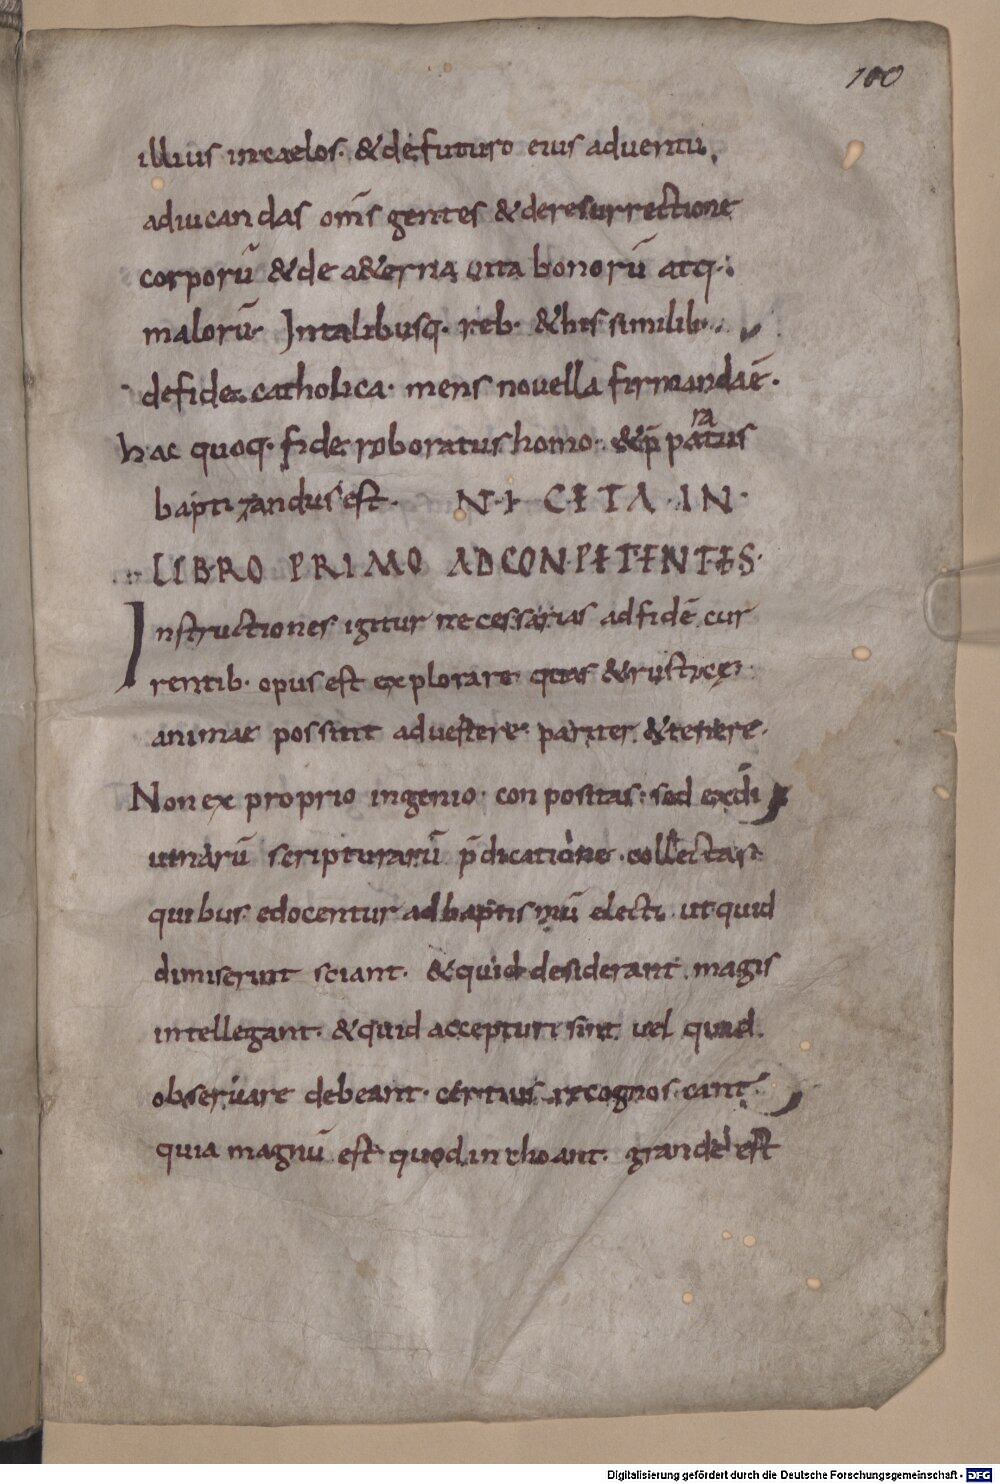 100
illius incaelos· &defuturo eius adventu,
adiudicandas om̄s gentes &deresurrectione
corporū &de a&erna uita bonorū atq·:
malorū· Intalibusq· reb· &his similib·
defide catholica· mens novella firmandaē·
hac quoq· fide roboratus homo· &p̄paratus
baptizandus est· NICETA IN·
LIBRO PRIMO ADCONPETENTES·
Instructiones igitur necessarias adfidē cur
rentib· opus est explorare quas &rusticę
animae possint advertere pariter &tenere·
Non ex proprio ingenio· conpositas· sed exdi
uinarū scripturarū p̄dicatione· collectas
quibus edocentur adbaptismū electi· ut quid
dimiserunt sciant· &quid desiderant magis
intellegant· &quid accepturi sint vel quid
observare debeant· certius recognoscant
quia magnū est quod inchoant· grande est
Digitalisierung gefördert durch die Deutsche Forschungsgemeinschaft - DFG